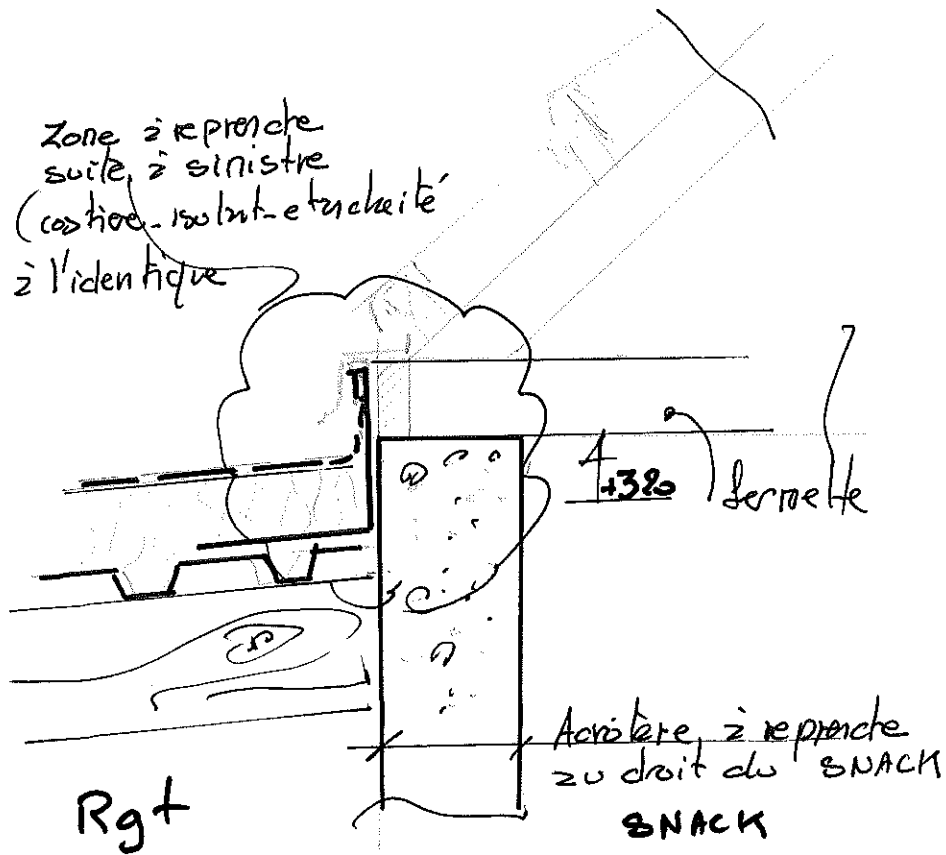 Zone à reprendre
suite à sinistre
(costière-isolant-etancheité
à l'identique
+320
fermette
Acrotère à reprendre
au droit du SNACK
SNACK
Rgt